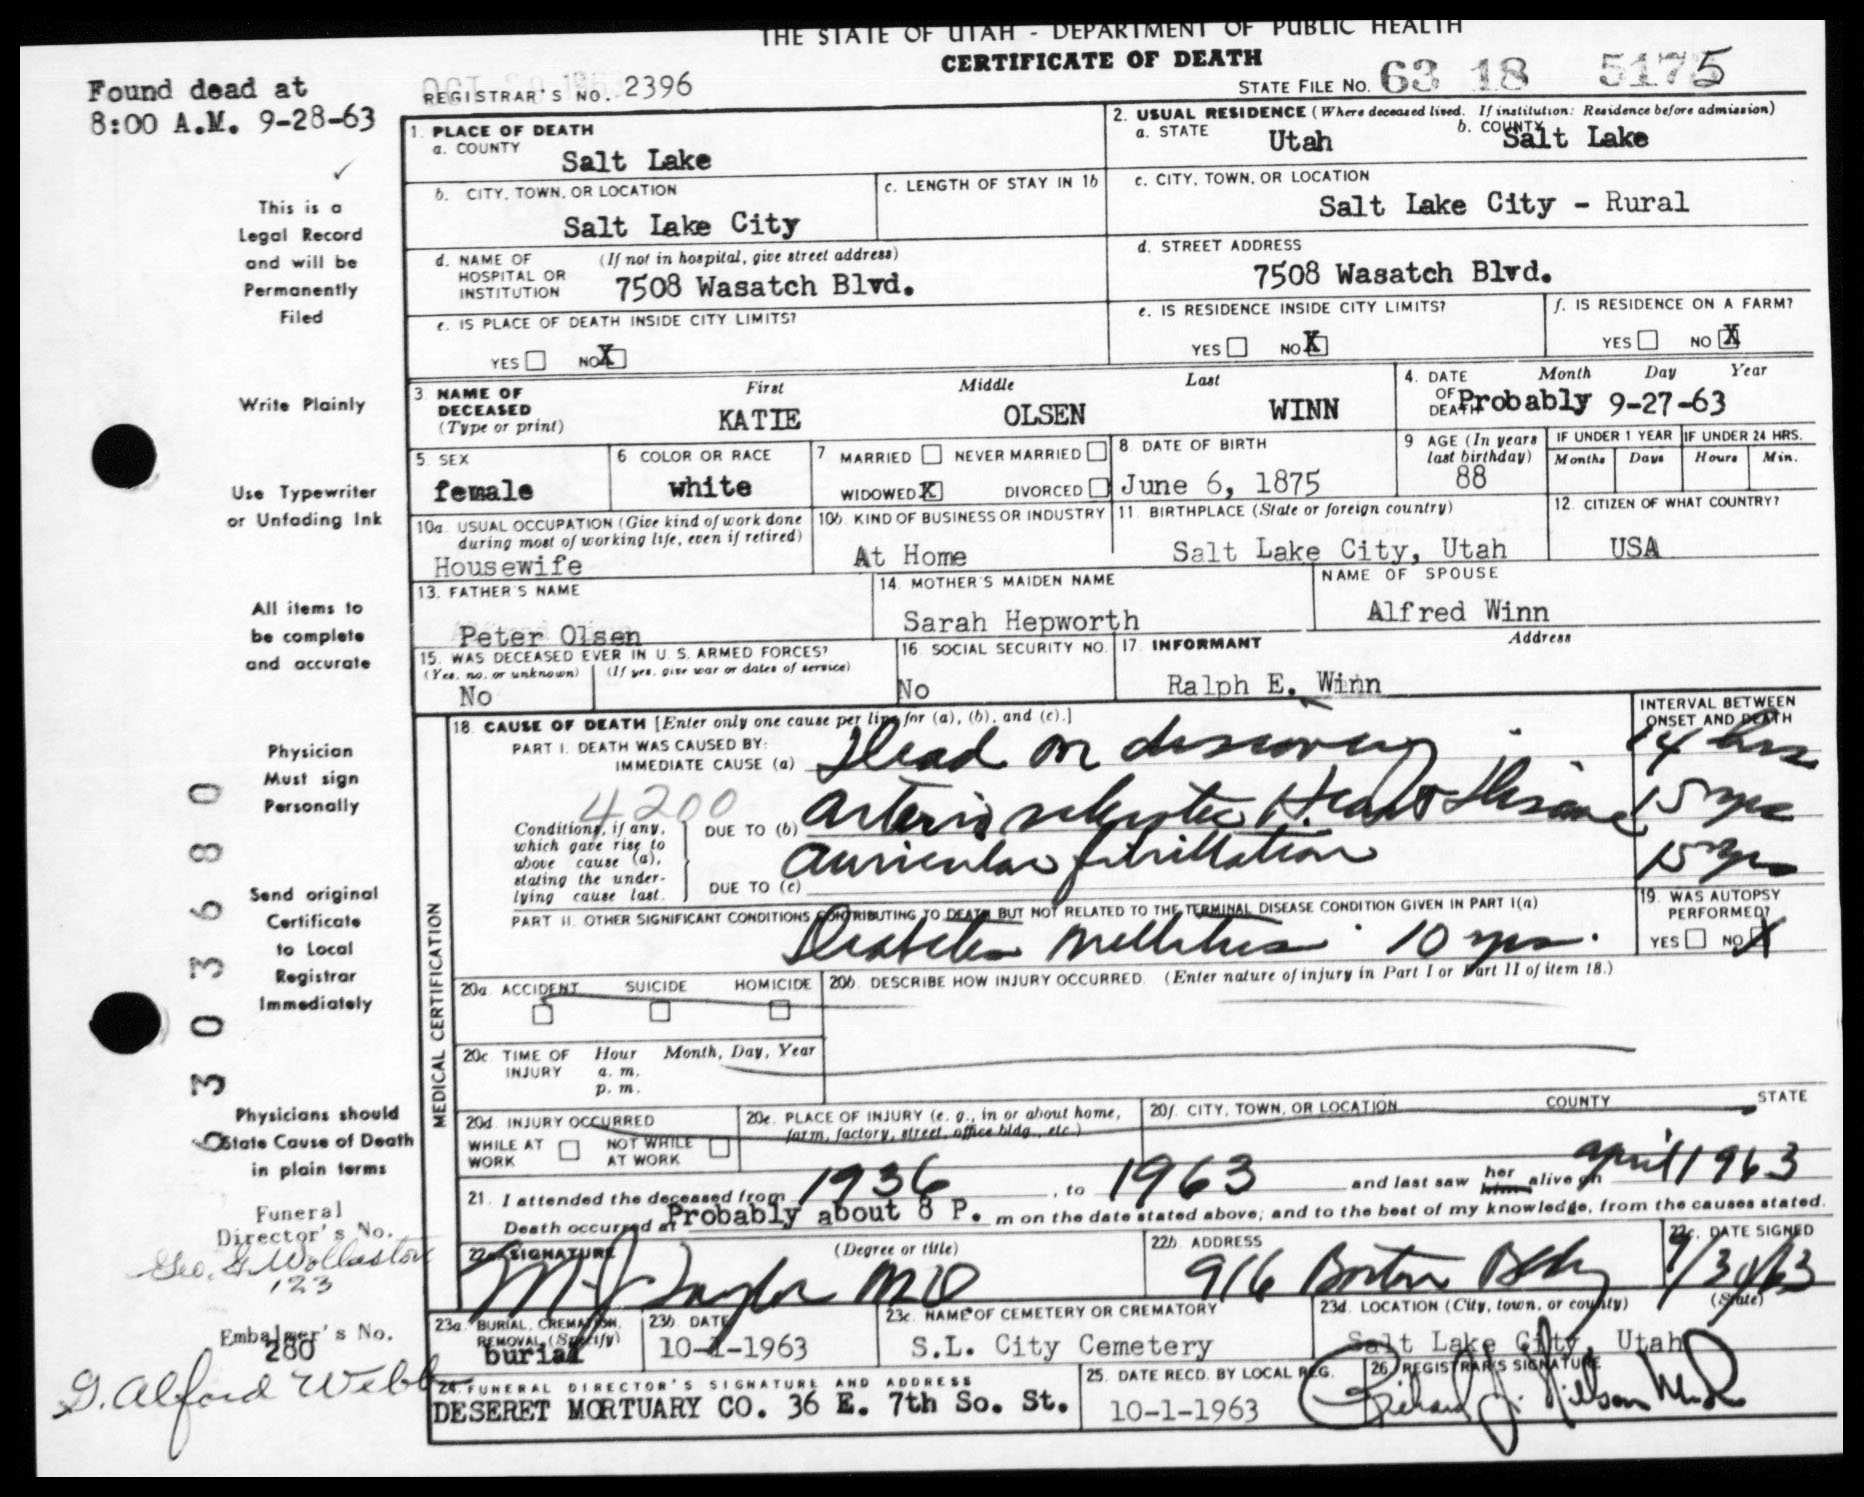 THE STATE OF UTAH - DEPARTMENT OF PUBLIC HEALTH
CERTIFICATE OF DEATH
Found dead at
8:00 A.M. 9-28-63
REGISTRAR'S NO. 2396
STATE FILE NO. 63 18 5175
1. PLACE OF DEATH
a. COUNTY
Salt Lake
2. USUAL RESIDENCE (Where deceased lived. If institution: Residence before admission)
a. STATE Utah b. COUNTY Salt Lake
b. CITY, TOWN, OR LOCATION
Salt Lake City
c. LENGTH OF STAY IN 1b
c. CITY, TOWN, OR LOCATION
Salt Lake City - Rural
d. NAME OF HOSPITAL OR INSTITUTION (If not in hospital, give street address)
7508 Wasatch Blvd.
d. STREET ADDRESS
7508 Wasatch Blvd.
e. IS PLACE OF DEATH INSIDE CITY LIMITS?
YES NO X
e. IS RESIDENCE INSIDE CITY LIMITS?
YES NO X
f. IS RESIDENCE ON A FARM?
YES NO X
3. NAME OF DECEASED (Type or print)
First Middle Last
KATIE OLSEN WINN
4. DATE OF DEATH Month Day Year
Probably 9-27-63
5. SEX
female
6 COLOR OR RACE
white
7 MARRIED NEVER MARRIED
WIDOWED X DIVORCED
8 DATE OF BIRTH
June 6, 1875
9 AGE (In years last birthday)
88
IF UNDER 1 YEAR
Months Days
IF UNDER 24 HRS.
Hours Min.
10a. USUAL OCCUPATION (Give kind of work done during most of working life, even if retired)
Housewife
10b. KIND OF BUSINESS OR INDUSTRY
At Home
11. BIRTHPLACE (State or foreign country)
Salt Lake City, Utah
12. CITIZEN OF WHAT COUNTRY?
USA
13. FATHER'S NAME
Peter Olsen
14. MOTHER'S MAIDEN NAME
Sarah Hepworth
NAME OF SPOUSE
Alfred Winn
15. WAS DECEASED EVER IN U.S. ARMED FORCES?
(Yes, no, or unknown) (If yes, give war or dates of service)
No
16. SOCIAL SECURITY NO.
No
17. INFORMANT Address
Ralph E. Winn
MEDICAL CERTIFICATION
18. CAUSE OF DEATH [Enter only one cause per line for (a), (b), and (c).]
INTERVAL BETWEEN ONSET AND DEATH
PART I. DEATH WAS CAUSED BY:
IMMEDIATE CAUSE (a) Dead on discovery 14 hrs
4200
Conditions, if any, which gave rise to above cause (a), stating the underlying cause last.
DUE TO (b) Arteriosclerotic Heart Disease 15 yrs
Auricular fibrillation 15 yrs
DUE TO (c)
PART II. OTHER SIGNIFICANT CONDITIONS CONTRIBUTING TO DEATH BUT NOT RELATED TO THE TERMINAL DISEASE CONDITION GIVEN IN PART I(a)
Diabetes Mellitus 10 yrs.
19. WAS AUTOPSY PERFORMED?
YES NO X
20a. ACCIDENT SUICIDE HOMICIDE
20b. DESCRIBE HOW INJURY OCCURRED. (Enter nature of injury in Part I or Part II of item 18.)
20c. TIME OF INJURY Hour Month, Day, Year
a. m.
p. m.
20d. INJURY OCCURRED
WHILE AT WORK NOT WHILE AT WORK
20e. PLACE OF INJURY (e. g., in or about home, farm, factory, street, office bldg., etc.)
20f. CITY, TOWN, OR LOCATION COUNTY STATE
21. I attended the deceased from 1936, to 1963 and last saw her him alive on April 1963
Death occurred at Probably about 8 P. m on the date stated above; and to the best of my knowledge, from the causes stated.
22a. SIGNATURE (Degree or title)
M J Taylor MD
22b. ADDRESS
916 Boston Bldg
22c. DATE SIGNED
9/30/63
23a. BURIAL, CREMATION, REMOVAL (Specify)
burial
23b. DATE
10-1-1963
23c. NAME OF CEMETERY OR CREMATORY
S.L. City Cemetery
23d. LOCATION (City, town, or county) (State)
Salt Lake City, Utah
24. FUNERAL DIRECTOR'S SIGNATURE AND ADDRESS
DESERET MORTUARY CO. 36 E. 7th So. St.
25. DATE RECD. BY LOCAL REG.
10-1-1963
26. REGISTRAR'S SIGNATURE
Richard J. Nilson
This is a
Legal Record
and will be
Permanently
Filed
Write Plainly
Use Typewriter
or Unfading Ink
All items to
be complete
and accurate
Physician
Must sign
Personally
Send original
Certificate
to Local
Registrar
Immediately
Physicians should
State Cause of Death
in plain terms
Funeral
Director's No.
Geo. G. Wollaston
123
Embalmer's No.
280
G. Alford Webb